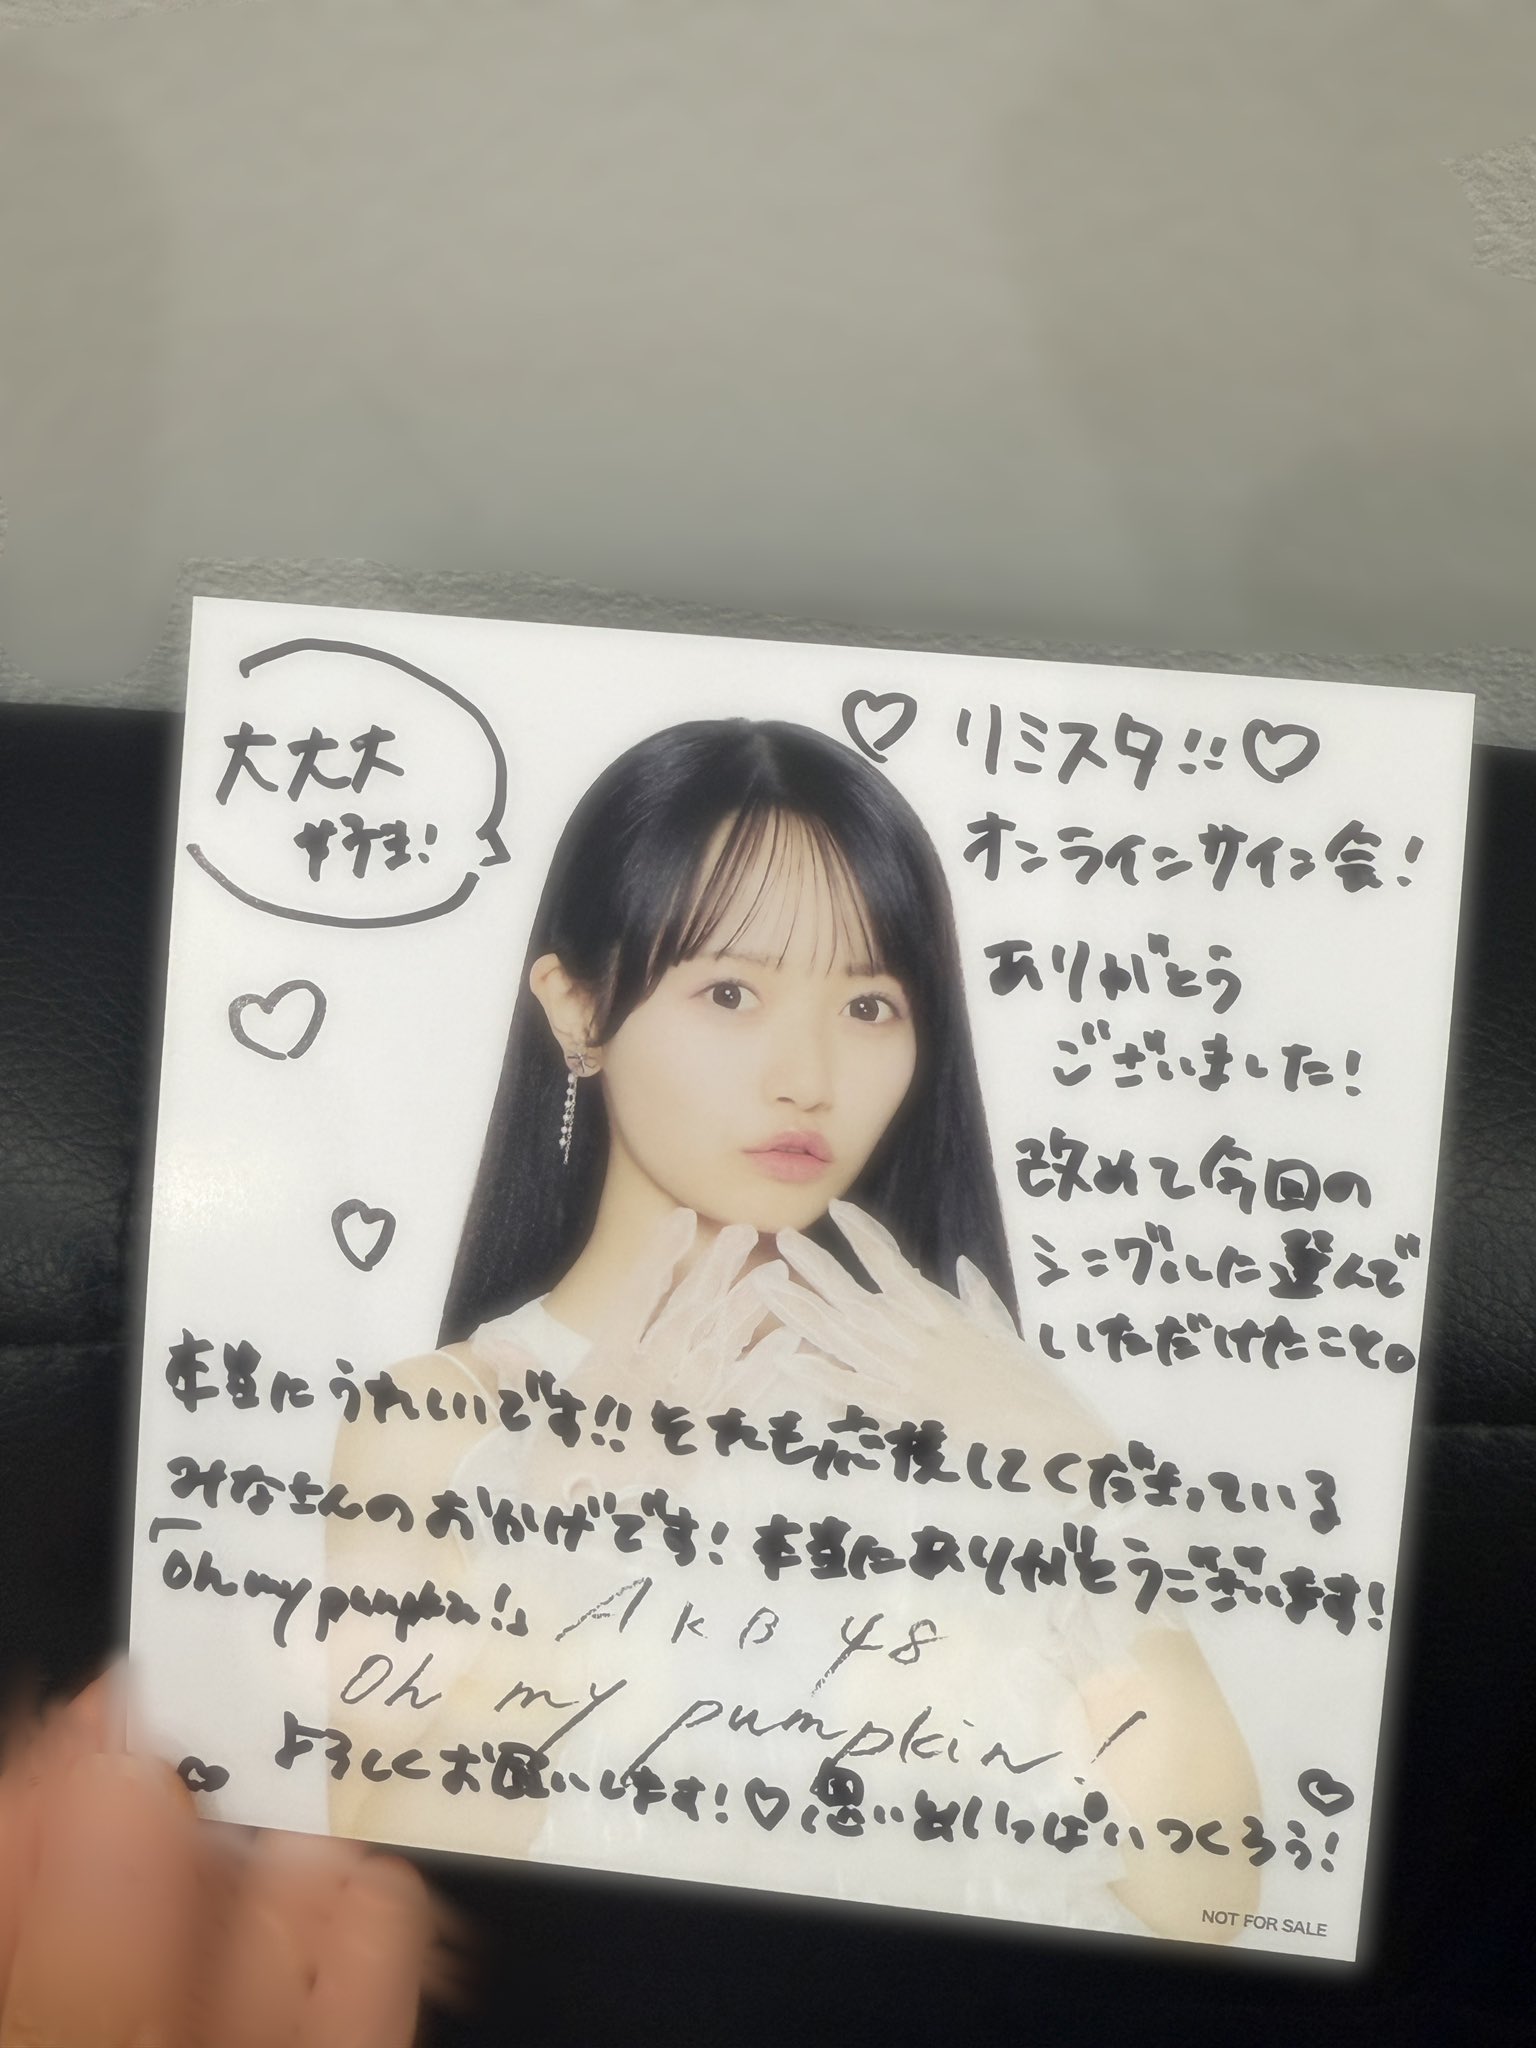 大大大
好き!
リミスタ!!
オンラインサイン会!
ありがとう
ございました!
改めて今回の
シングルに選んで
いただけたこと。
本当にうれしいです!!それも応援してくださっている
みなさんのおかげです!本当にありがとうございます!
「oh my pumpkin!」
AKB48
Oh my pumpkin!
よろしくお願いします!♡思い出いっぱいつくろう!
NOT FOR SALE